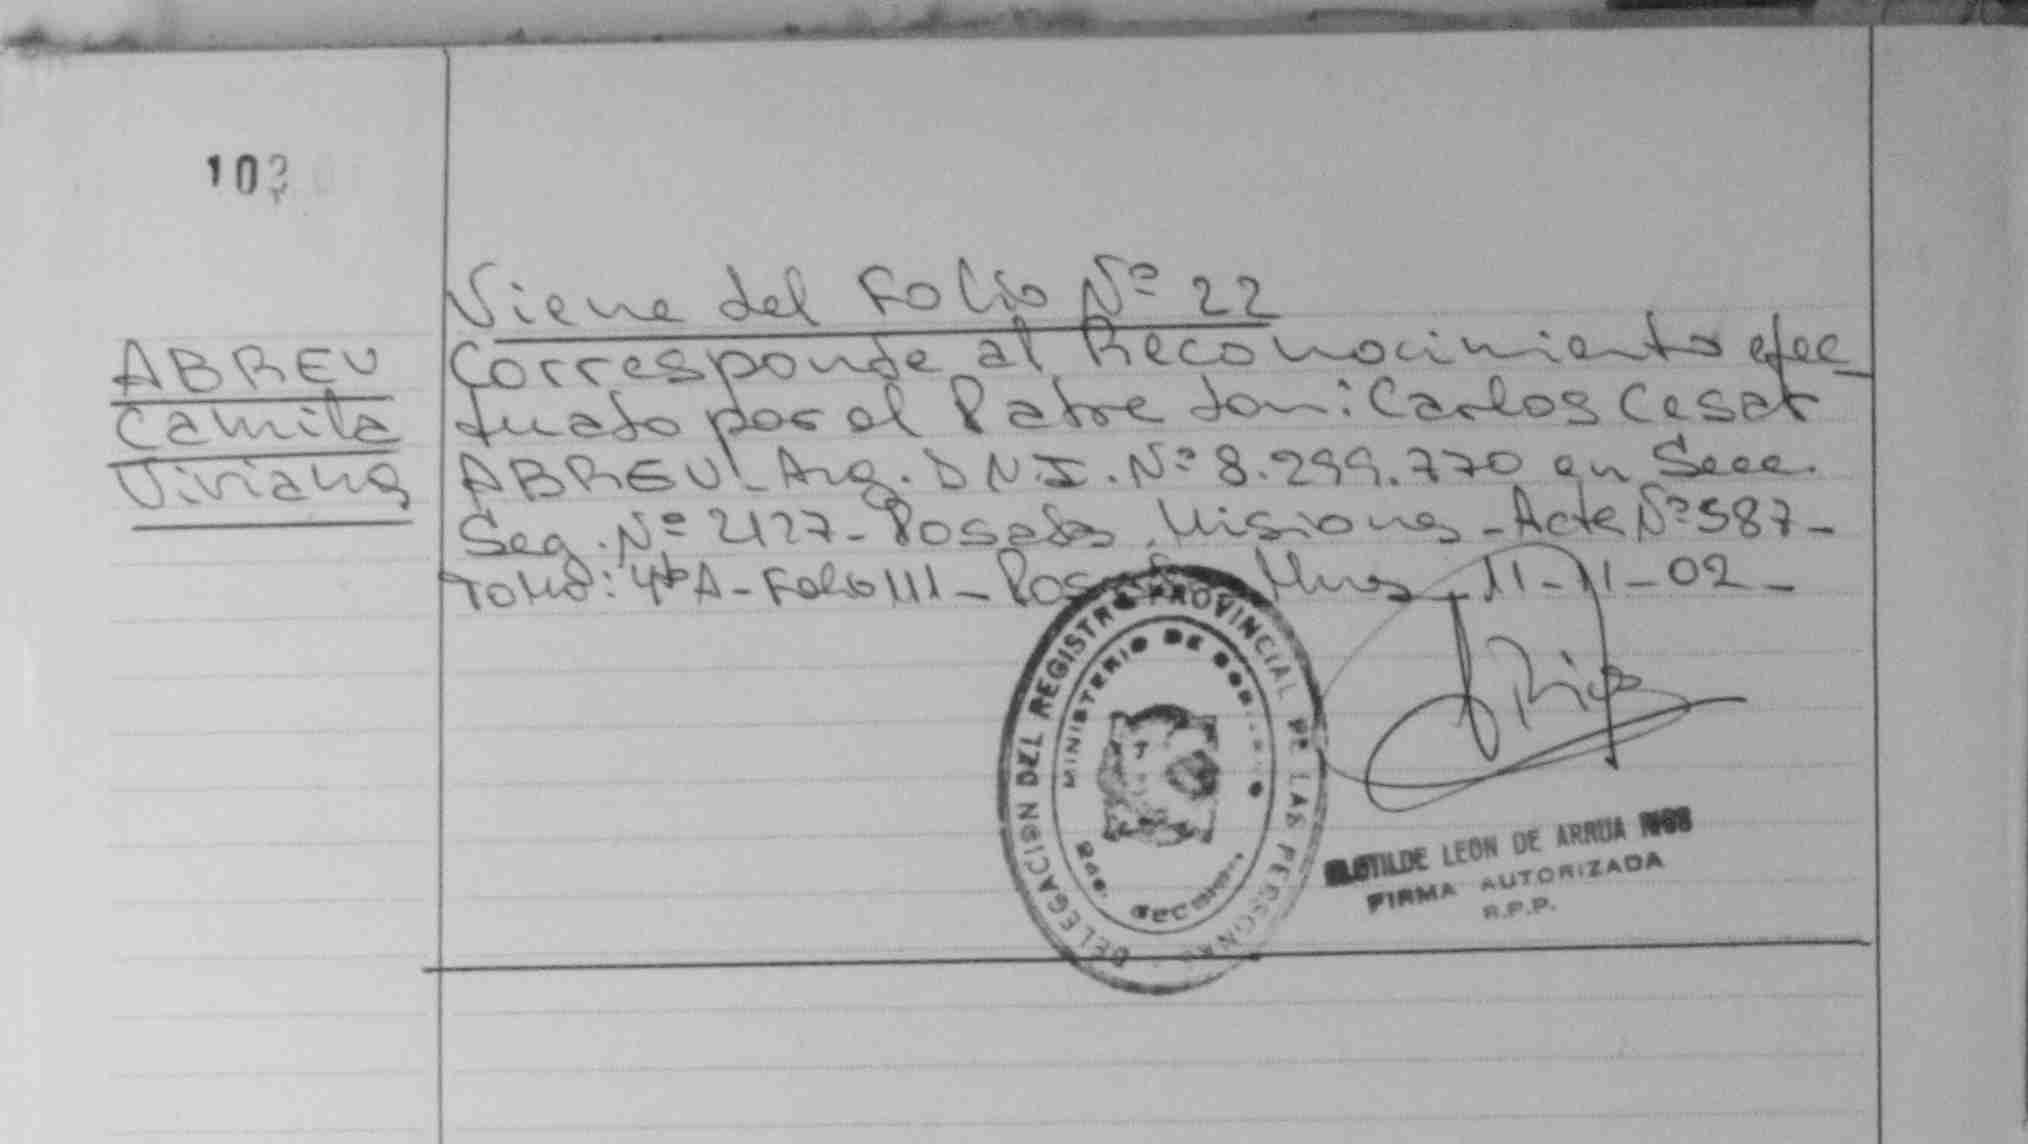 10
Viene del Folio Nº 22
ABREU
Camila
Viviana
Corresponde al Reconocimiento efec_
tuado por el Padre don: Carlos Cesar
ABREU_ Arg. D N.I. Nº 8.299.770 en Secc.
Seg. Nº 2127- Posadas, Misiones - Acta Nº 587-
Tomo: 4to A - Folio 111 - Posadas Mnes - 11-11-02 -
DELEGACION DEL REGISTRO PROVINCIAL DE LAS PERSONAS
MINISTERIO DE GOBIERNO
Rios
CLOTILDE LEON DE ARRUA RIOS
FIRMA AUTORIZADA
R.P.P.